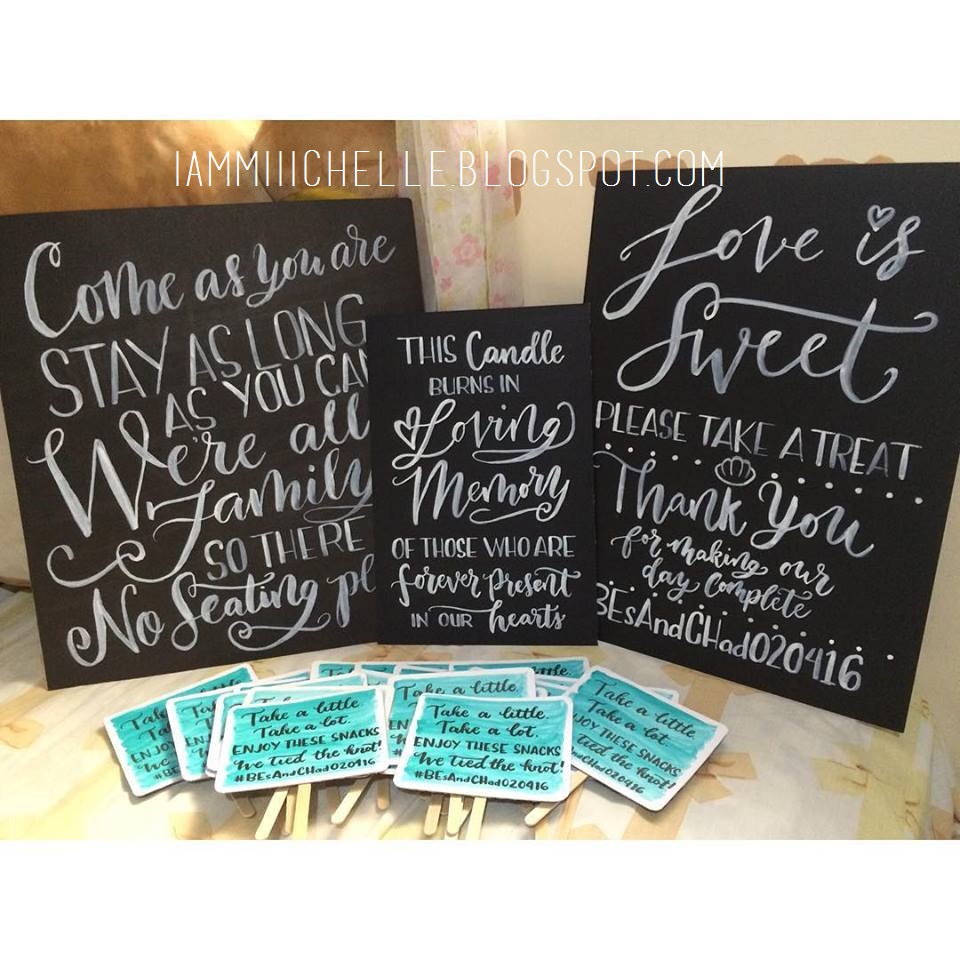 IAMMIIICHELLE.BLOGSPOT.COM
Come as you are
STAY AS LONG
AS YOU CAN
We're all
Family
SO THERE
No Seating pl
THIS Candle
BURNS IN
Loving
Memory
OF THOSE WHO ARE
forever present
IN OUR hearts
Love is
Sweet
PLEASE TAKE A TREAT
Thank You
for making our
day complete
BEsAndCHad020416
Take a little.
Take a lot.
ENJOY THESE SNACKS
We tied the knot!
#BEsAndCHad020416
Take a little.
Take a lot.
ENJOY THESE SNACKS
We tied the knot!
#BEsAndCHad020416
Take a little.
Take a lot.
THESE SNACKS
tied the knot!
AndCHad020416
Take a little.